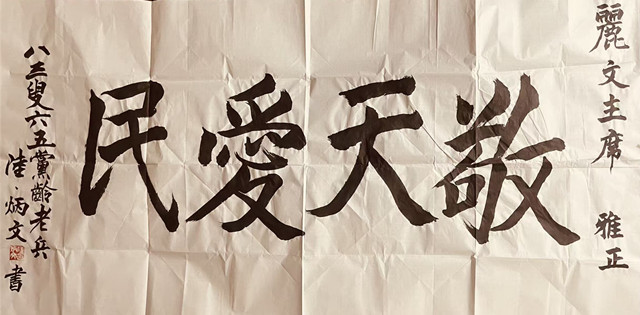 麗文主席 雅正
敬天愛民
八三叟六五黨齡老兵
陸·炳文 書